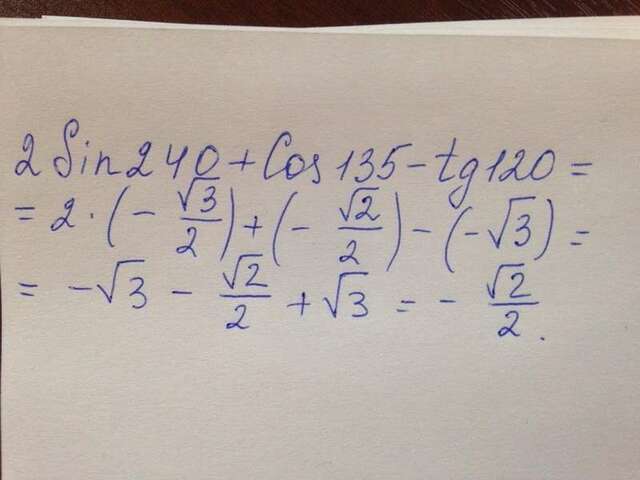 2 Sin 240 + Cos 135 - tg 120 =
= 2 · (- √3/2) + (- √2/2) - (-√3) =
= -√3 - √2/2 + √3 = - √2/2.